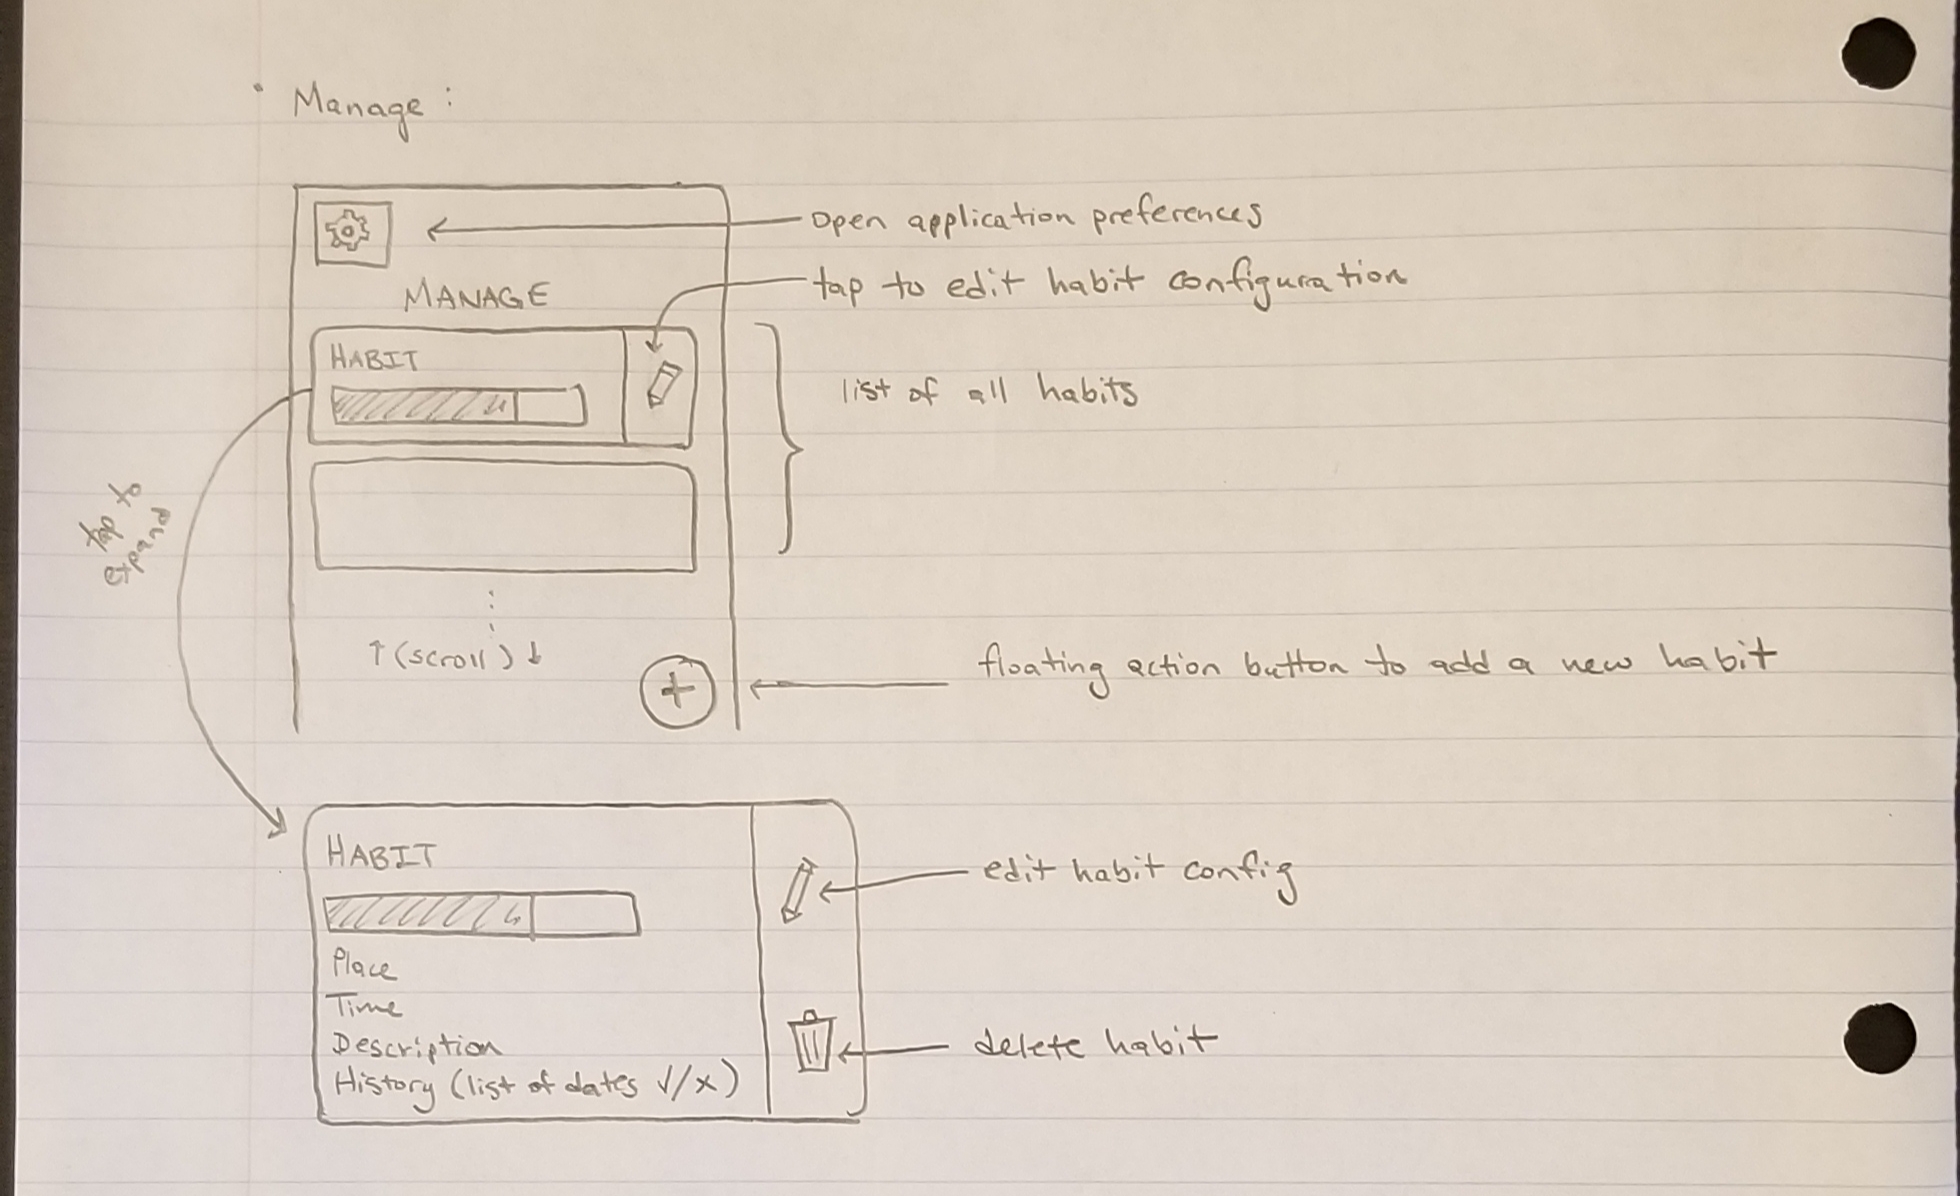 • Manage :
open application preferences
tap to edit habit configuration
MANAGE
HABIT
list of all habits
tap to
expand
↑ (scroll) ↓
+
floating action button to add a new habit
HABIT
edit habit config
Place
Time
Description
delete habit
History (list of dates √/x)